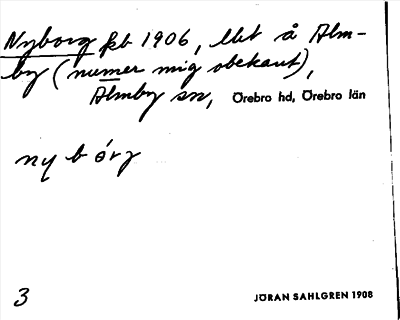 Nyborg fsb 1906, lht å Alm-
by (numer mig obekant),
Almby sn, Örebro hd, Örebro län
ny b ó r g
3
JÖRAN SAHLGREN 1908